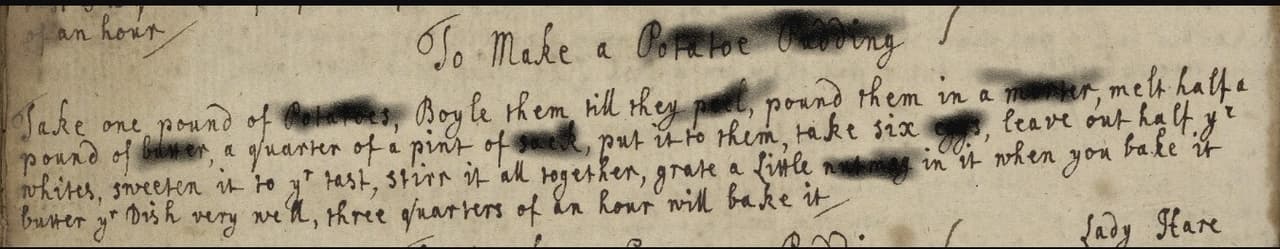 of an hour
To Make a Potatoe Pudding
Take one pound of Boyle them till they pound them in a melt half a
pound of a quarter of a pint of put it to them, take six leave out half yr
whites, sweeten it to yr tast, stirr it all together, grate a little in it when you bake it
butter yr Dish very well, three quarters of an hour will bake it
Lady Hare